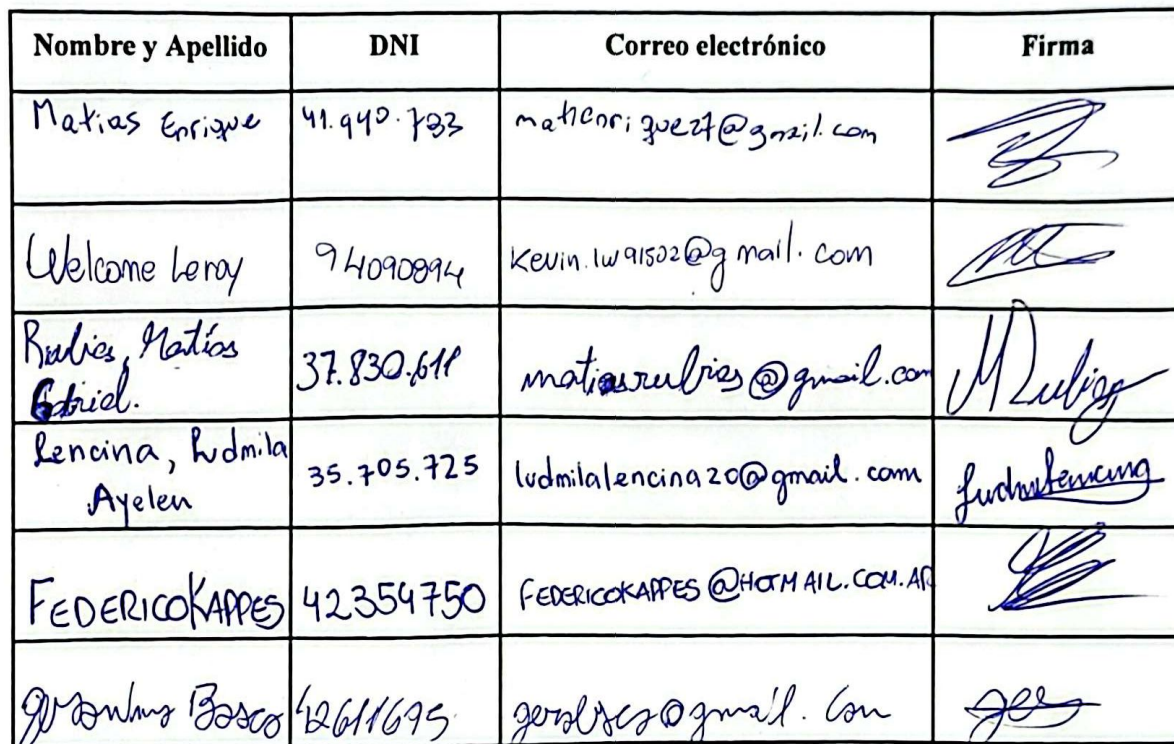 Nombre y Apellido DNI Correo electrónico Firma
Matias Enrique 41.940.733 matienrique27@gmail.com
Welcome Leroy 94090894 Kevin.lw91502@gmail.com
Rubies, Matías 37.830.611 matiasrubies@gmail.com MRubies
Gabriel.
Lencina, Ludmila 35.705.725 ludmilalencina20@gmail.com
Ayelen
FEDERICO KAPPES 42354750 FEDERICOKAPPES@HOTMAIL.COM.AR
Bosco 42611695 ger